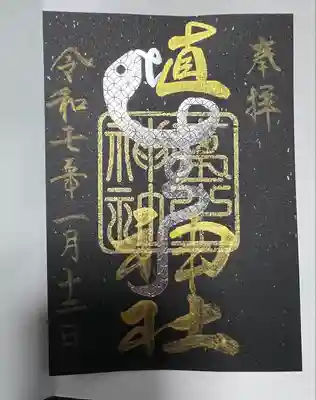 奉拝
直
神社
令和七年一月十二日